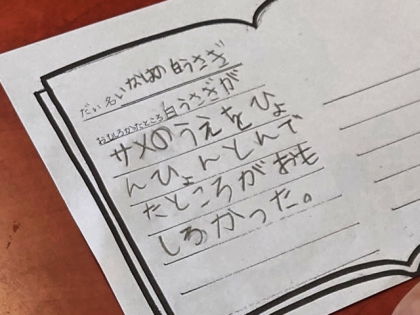 だい名 いなばの白うさぎ
おもしろかったところ 白うさぎが
サメのうえをひょ
んひょんとんで
たところがおも
しろかった。